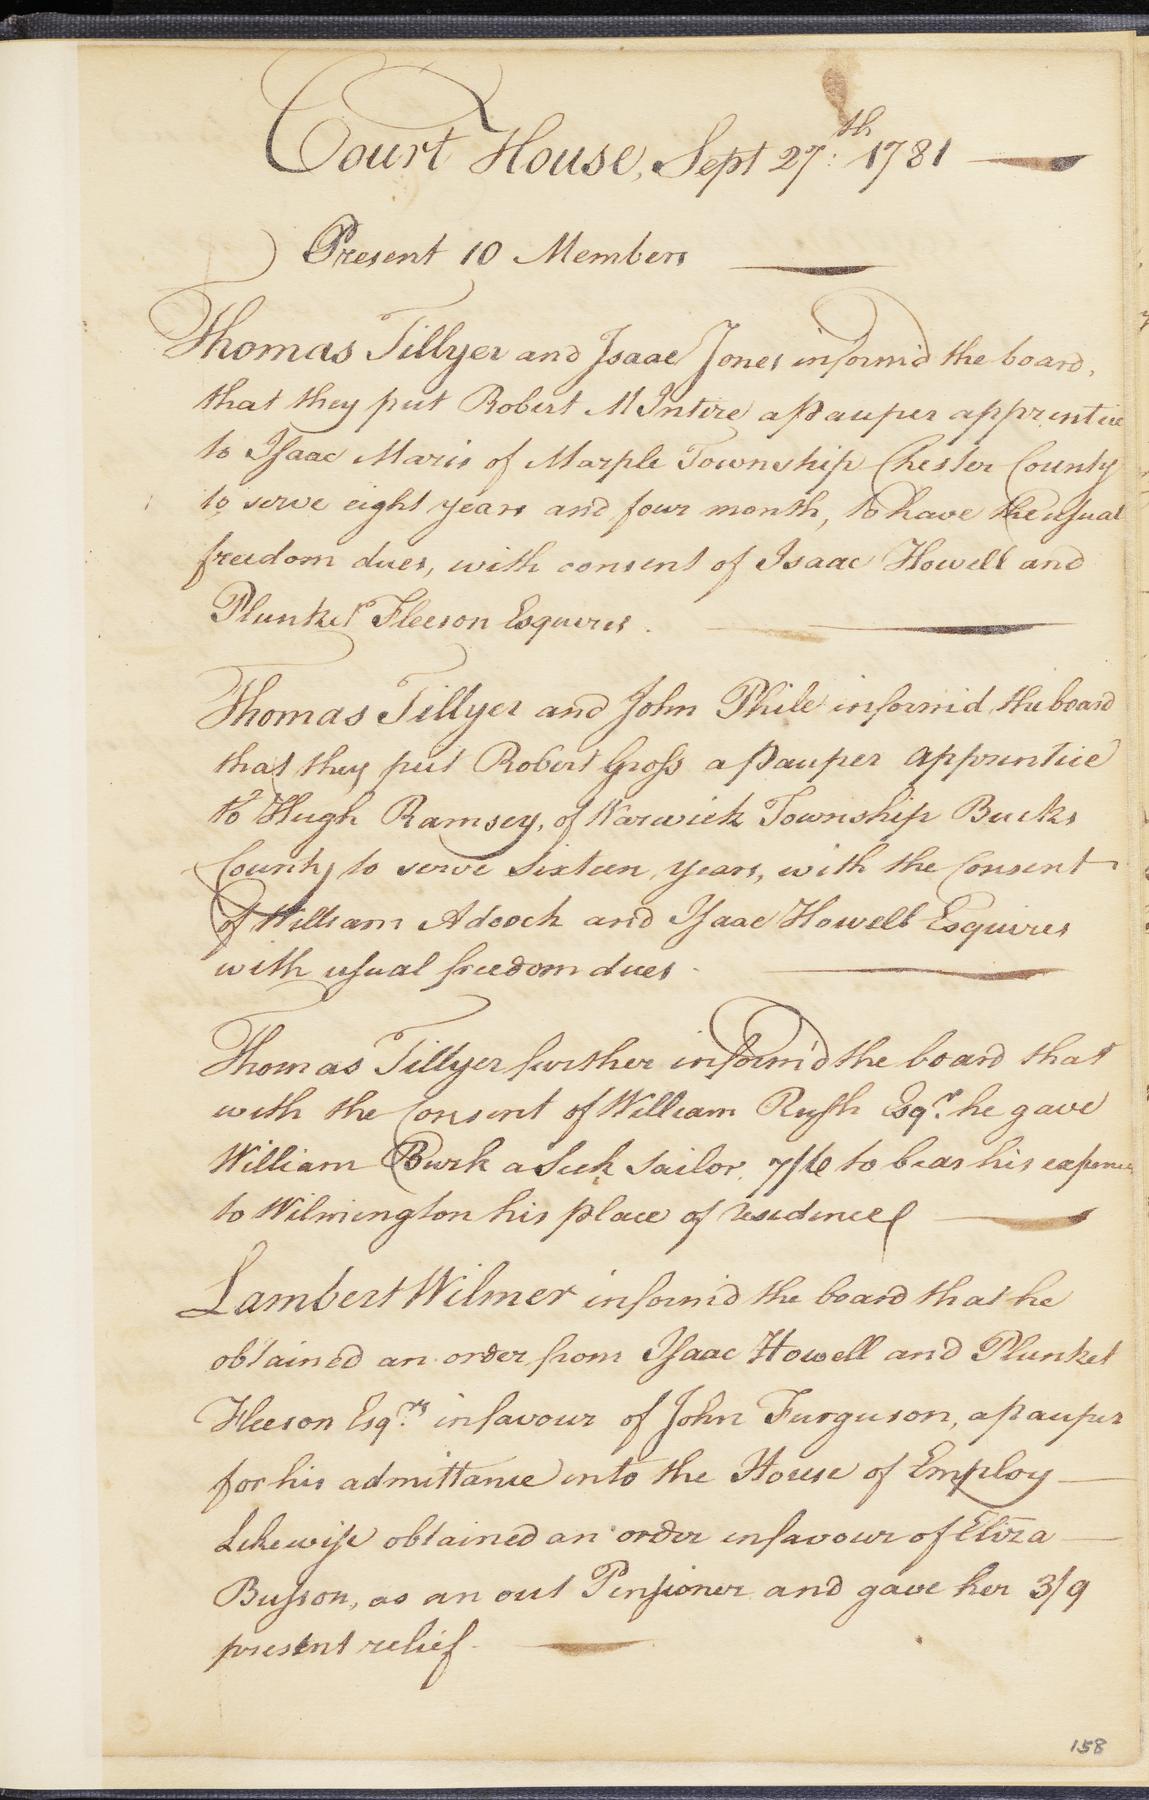 Court House, Sept 27:th 1781
Present 10 Members
Thomas Tillyer and Isaac Jones inform'd the board,
that they put Robert McIntire a pauper apprentice
to Isaac Maris of Marple Township Chester County
to serve eight years and four month, to have the usual
freedom dues, with consent of Isaac Howell and
Plunket Fleeson Esquires.
Thomas Tillyer and John Phile inform'd the board
that they put Robert Gross a pauper apprentice
to Hugh Ramsey, of Warwick Township Bucks
County to serve sixteen years, with the Consent
of William Adcock and Isaac Howell Esquires
with usual freedom dues.
Thomas Tillyer further inform'd the board that
with the Consent of William Rush Esqr. he gave
William Burk a Sick Sailor, 7/6 to bear his expences
to Wilmington his place of residence
Lambert Wilmer inform'd the board that he
obtained an order from Isaac Howell and Plunket
Fleeson Esqrs in favour of John Furguson, a pauper
for his admittance into the House of Employ
Likewise obtained an order in favour of Eliza
Busson, as an out Pensioner and gave her 3/9
present relief.
158